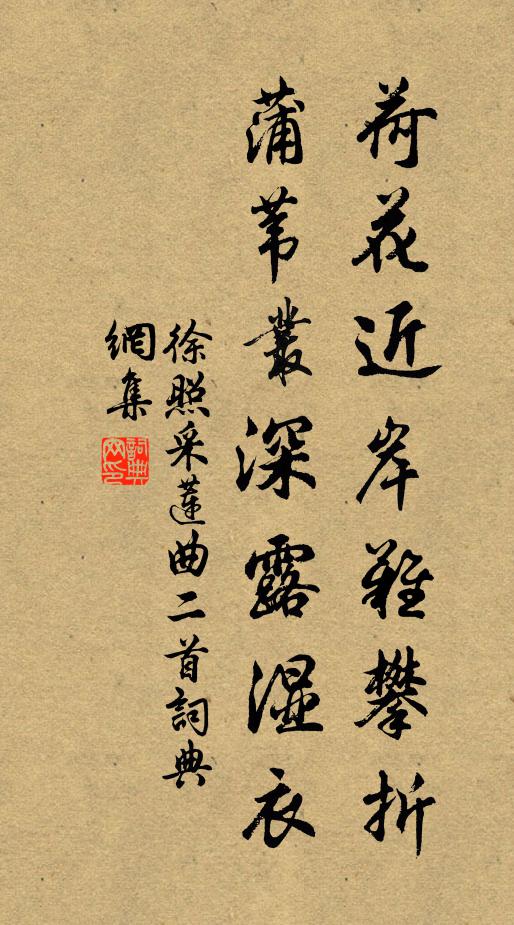 荷花近岸難攀折
蒲葦叢深露濕衣
徐照采蓮曲二首詞典
網集
詞典
网印